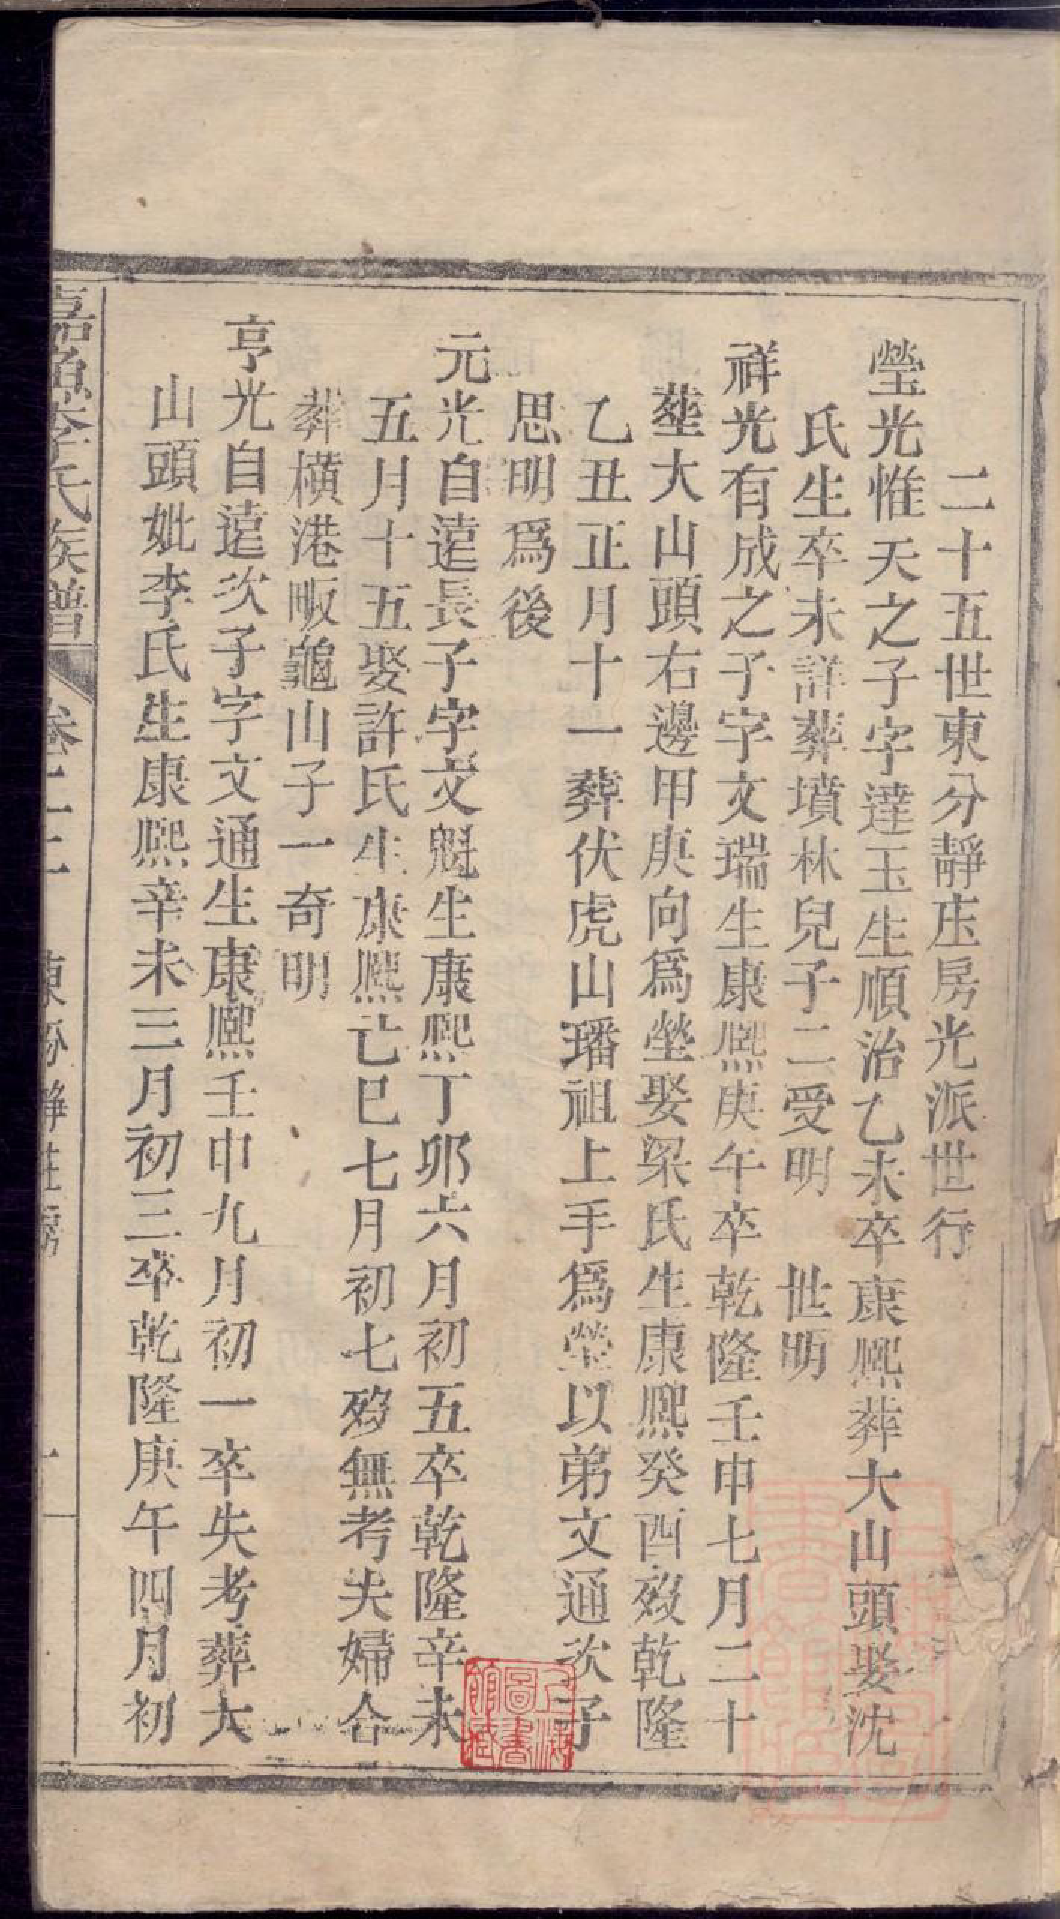 二十五世東分靜庄房光派世行
瑩光惟天之子字達玉生順治乙未卒康熙葬大山頭娶沈
氏生卒未詳葬墳林兒子二受明 世明
祥光有成之子字文瑞生康熙庚午卒乾隆壬申七月二十
塟大山頭右邊甲庚向爲塋娶梁氏生康熙癸酉歿乾隆
乙丑正月十一葬伏虎山璠祖上手爲塋以弟文通次子
思明爲後
元光自遠長子字文魁生康熙丁卯六月初五卒乾隆辛未
五月十五娶許氏生康熙己巳七月初七歿無考夫婦合
葬橫港畈龜山子一奇明
亨光自遠次子字文通生康熙壬申九月初一卒失考葬大
山頭妣李氏生康熙辛未三月初三卒乾隆庚午四月初
嘉魚李氏族譜
卷二
東分靜庄房
一
上海圖書館藏